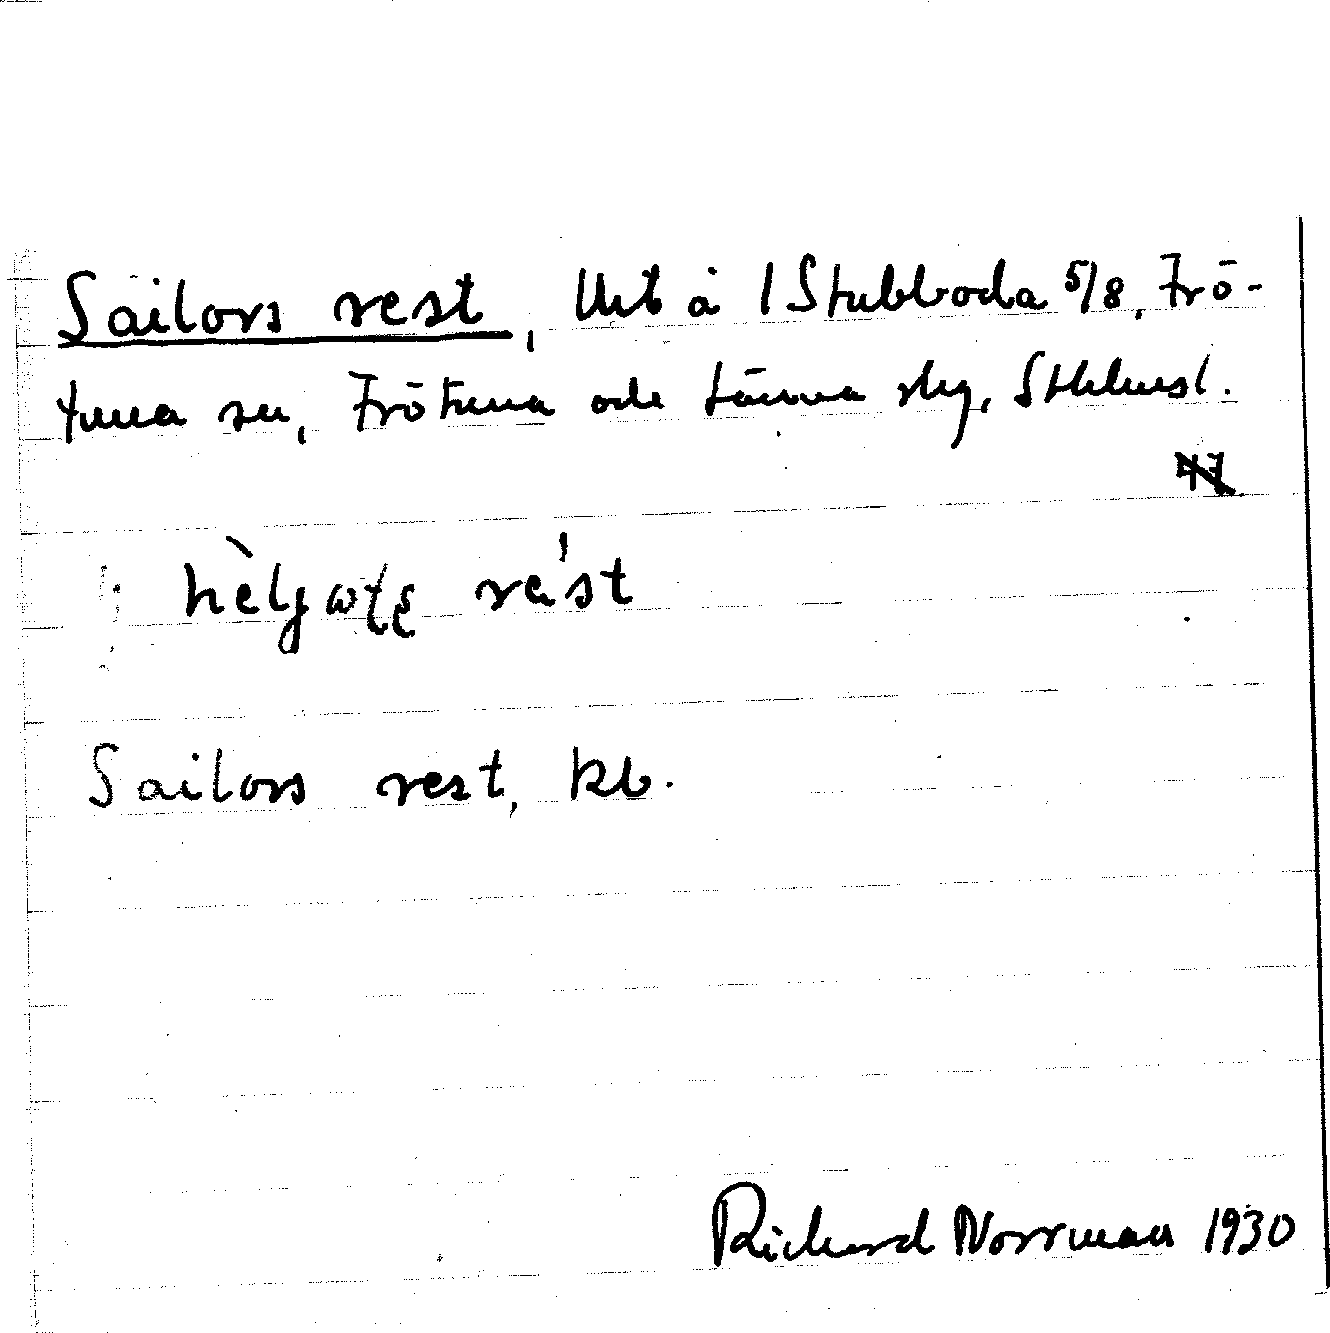 Sailors rest, Utst å 1 Stubboda 5/8, Frö-
tuna sn, Frötuna och Länna skg, Sthlmsl.
rest
Sailors rest, kb.
Richard Norrman 1930